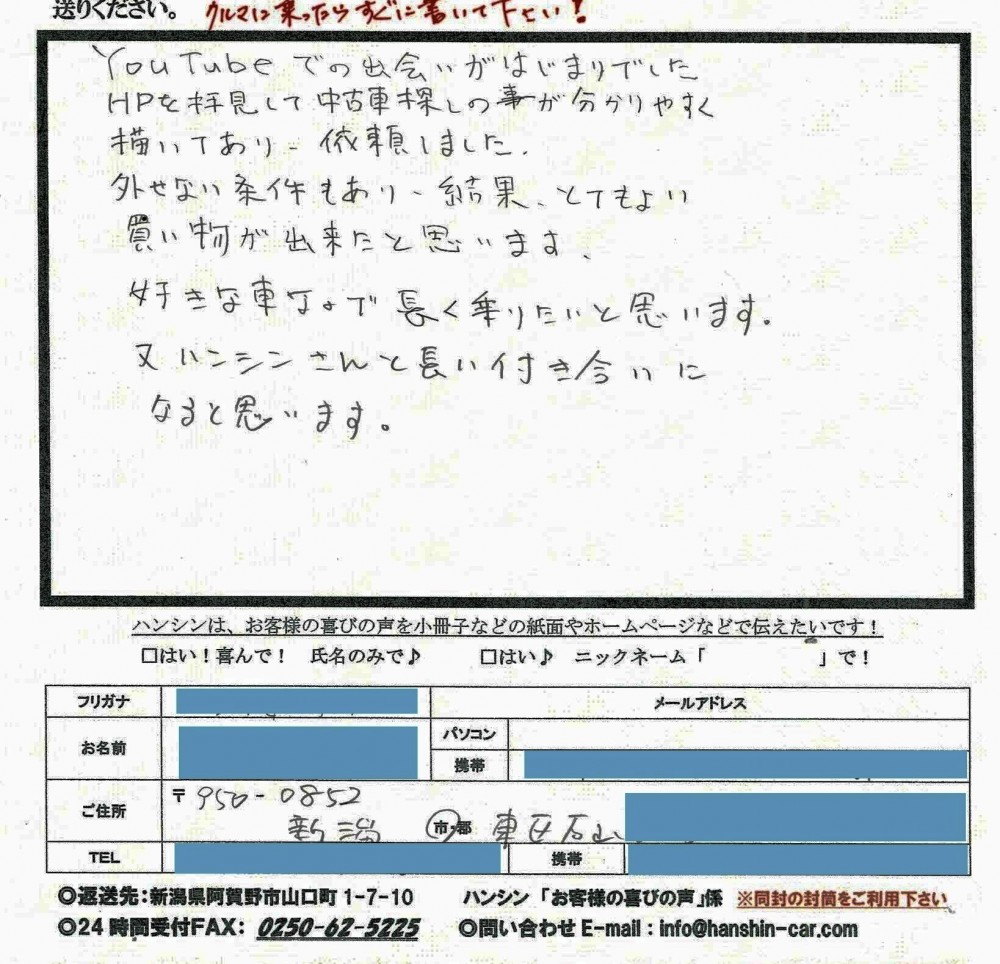 送りください。 クルマに乗ったらすぐに書いて下せい!
YouTubeでの出会いがはじまりでした
HPを拝見して中古車探しの事が分かりやすく
描いてあり、依頼しました.
外せない条件もあり、結果、とてもよい
買い物が出来たと思います、
好きな車なので長く乗りたいと思います。
又ハンシンさんと長い付き合いに
なると思います。
ハンシンは、お客様の喜びの声を小冊子などの紙面やホームページなどで伝えたいです!
□はい!喜んで! 氏名のみで♪ □はい♪ ニックネーム「 」で!
フリガナ メールアドレス
お名前 パソコン
携帯
ご住所 〒950-0852
新潟 市・郡 東区石山
TEL 携帯
◎返送先:新潟県阿賀野市山口町1-7-10 ハンシン「お客様の喜びの声」係 ※同封の封筒をご利用下さい
◎24時間受付FAX: 0250-62-5225 ◎問い合わせE-mail:info@hanshin-car.com